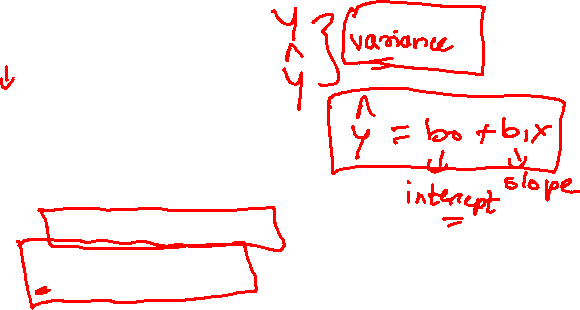 y
variance
ŷ
ŷ = b₀ + b₁x
intercept
slope